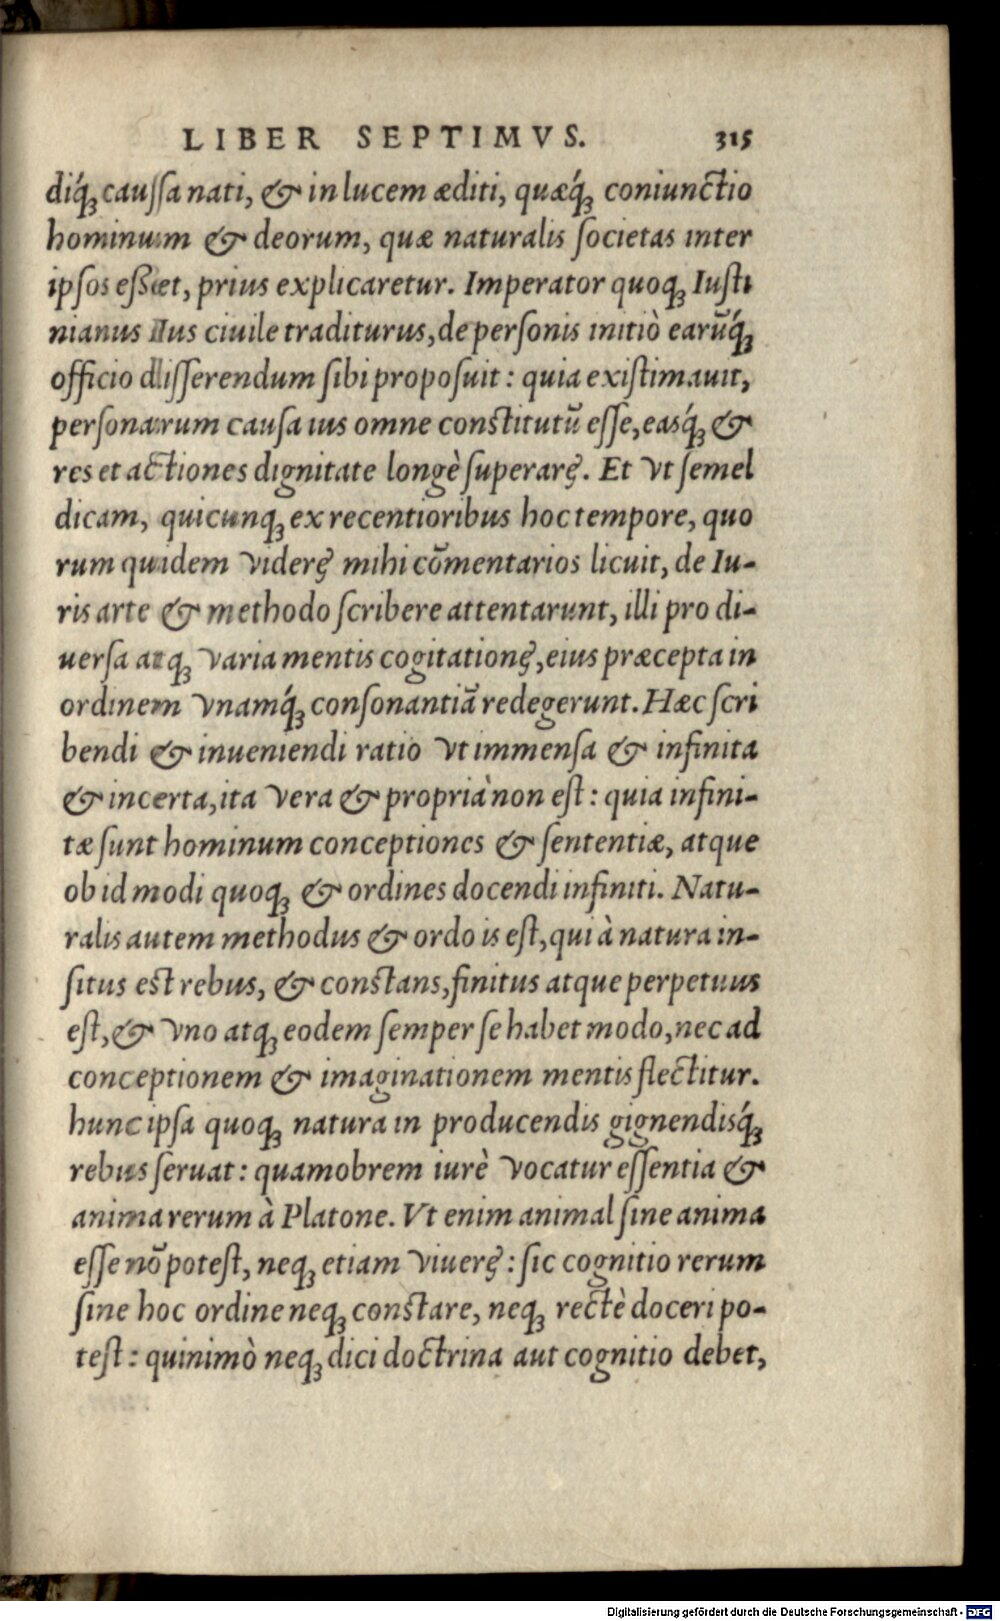 LIBER SEPTIMVS. 315
diq́ꝫ caussa nati, & in lucem æditi, quæq́ꝫ coniunctio
hominum & deorum, quæ naturalis societas inter
ipsos esset, prius explicaretur. Imperator quoqꝫ Iusti
nianus Ius ciuile traditurus, de personis initiò earũq́ꝫ
officio disserendum sibi proposuit: quia existimauit,
personarum causa ius omne constitutũ esse, easq́ꝫ &
res et actiones dignitate longè superarę. Et vt semel
dicam, quicunqꝫ ex recentioribus hoc tempore, quo
rum quidem viderę mihi cõmentarios licuit, de Iu-
ris arte & methodo scribere attentarunt, illi pro di-
uersa atqꝫ varia mentis cogitationę, eius præcepta in
ordinem vnamq́ꝫ consonantiã redegerunt. Hæc scri
bendi & inueniendi ratio vt immensa & infinita
& incerta, ita vera & propria non est: quia infini-
tæ sunt hominum conceptiones & sententiæ, atque
ob id modi quoqꝫ & ordines docendi infiniti. Natu-
ralis autem methodus & ordo is est, qui à natura in-
situs est rebus, & constans, finitus atque perpetuus
est, & vno atqꝫ eodem semper se habet modo, nec ad
conceptionem & imaginationem mentis flectitur.
hunc ipsa quoqꝫ natura in producendis gignendisq́ꝫ
rebus seruat: quamobrem iurè vocatur essentia &
anima rerum à Platone. Vt enim animal sine anima
esse nõ potest, neqꝫ etiam viuerę: sic cognitio rerum
sine hoc ordine neqꝫ constare, neqꝫ rectè doceri po-
test: quinimò neqꝫ dici doctrina aut cognitio debet,
Digitalisierung gefördert durch die Deutsche Forschungsgemeinschaft - DFG